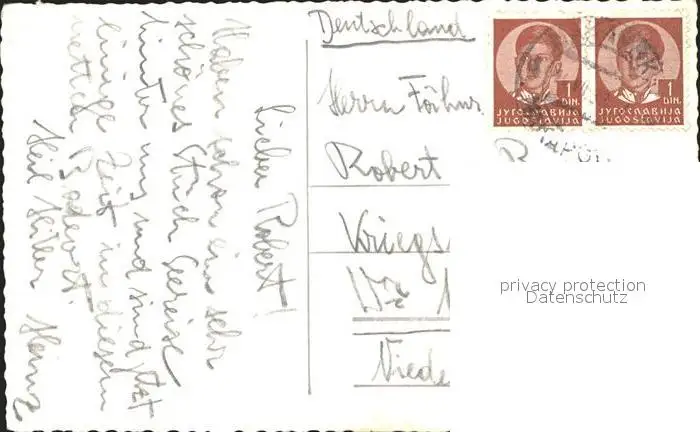 Lieber Robert!
Haben schon ein sehr
schönes Stück Seereise
hinter uns und sind jetzt
einige Zeit in diesem
netten Badeort.
Heil Hitler Heinz
Deutschland
Herrn
Robert
Kriegs
Niede
1 DIN. 1 DIN.
ЈУГОСЛАВИЈА ЈУГОСЛАВИЈА
JUGOSLAVIJA JUGOSLAVIJA
privacy protection
Datenschutz